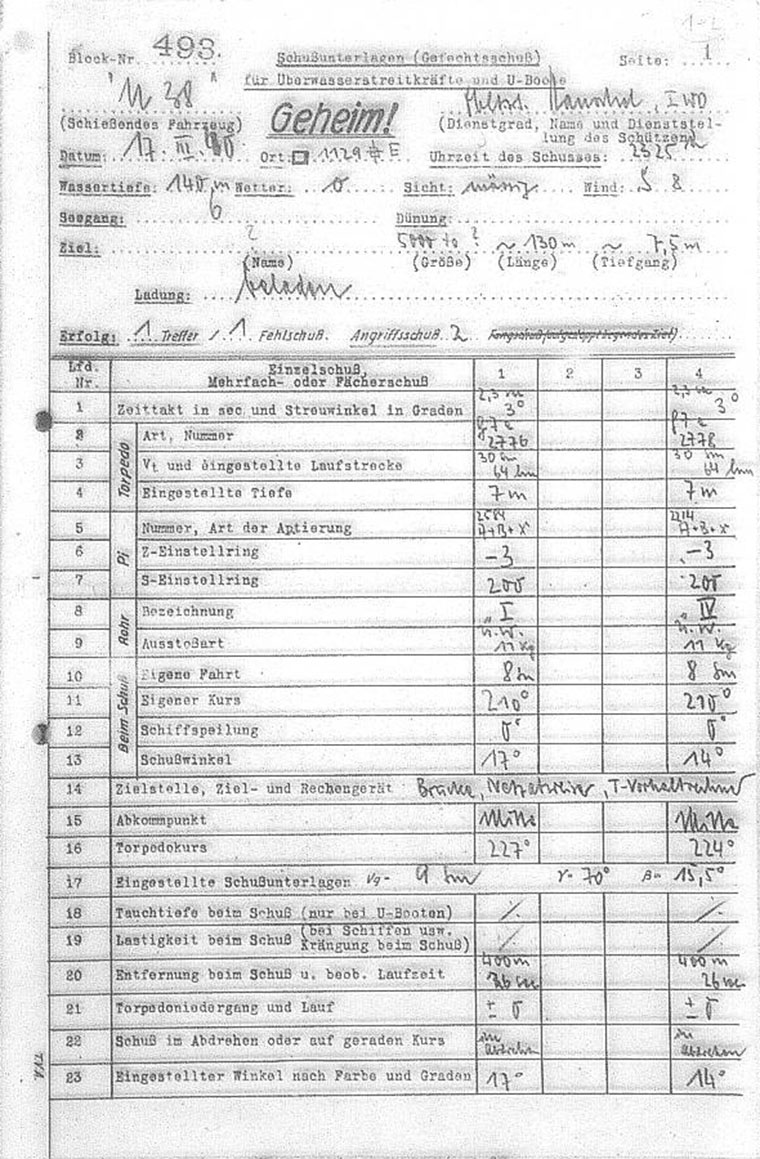 1-2
Block-Nr. 493. Schußunterlagen (Gefechtsschuß) Seite: 1
für Überwasserstreitkräfte und U-Boote
"U 38" Geheim! I WO
(Schießendes Fahrzeug) (Dienstgrad, Name und Dienststel-
lung des Schützen)
Datum: 17. III. 40 Ort: 1129 E Uhrzeit des Schusses: 2325
Wassertiefe: 140 m Wetter: 0 Sicht: mässig Wind: S 8
Seegang: 6 Dünung:
Ziel: ? 5000 to ? ~ 130 m ~ 7,5 m
(Name) (Größe) (Länge) (Tiefgang)
Ladung: beladen
Erfolg: 1 Treffer / 1 Fehlschuß. Angriffsschuß 2 Fangschuß (auf gestoppt liegendes Ziel)
Lfd. Nr. Einzelschuß, Mehrfach- oder Fächerschuß 1 2 3 4
1 Zeittakt in sec und Streuwinkel in Graden 2,3 sec 3° 2,3 sec 3°
Torpedo
2 Art, Nummer G7e 2776 G7e 2778
3 Vt und eingestellte Laufstrecke 30 sm 64 hm 30 sm 64 hm
4 Eingestellte Tiefe 7m 7m
Pi
5 Nummer, Art der Aptierung A+B+X A+B+X
6 Z-Einstellring -3 -3
7 S-Einstellring 200 200
Rohr
8 Bezeichnung I IV
9 Ausstoßart 11 kg 11 kg
Beim Schuß
10 Eigene Fahrt 8 sm 8 sm
11 Eigener Kurs 210° 210°
12 Schiffspeilung 0° 0°
13 Schußwinkel 17° 14°
14 Zielstelle, Ziel- und Rechengerät Brücke, T-Vorhaltrechner
15 Abkommpunkt Mitte Mitte
16 Torpedokurs 227° 224°
17 Eingestellte Schußunterlagen Vg= 9 sm γ= 70° β= 15,5°
18 Tauchtiefe beim Schuß (nur bei U-Booten) ./. ./.
19 Lastigkeit beim Schuß (bei Schiffen usw. Krängung beim Schuß) ./. ./.
20 Entfernung beim Schuß u. beob. Laufzeit 400m 26 sec 400m 26 sec
21 Torpedoniedergang und Lauf ± 0 ± 0
22 Schuß im Abdrehen oder auf geraden Kurs im Abdrehen im Abdrehen
23 Eingestellter Winkel nach Farbe und Graden 17° 14°